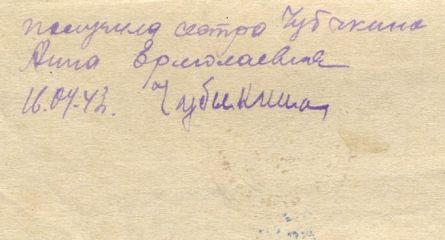 получила сестра Чубыкина
Анна Ермолаевна
16.04.43. Чубыкина